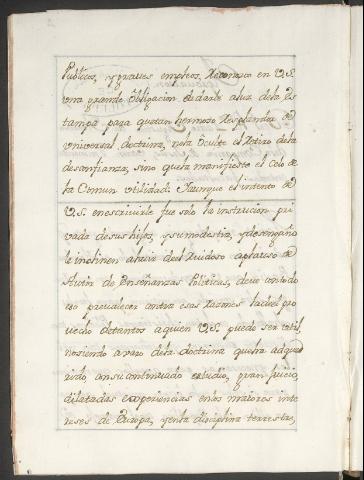 Publicos, y graues empleos, Reconosco en V.S.
vna grande obligacion de darle a luz de la Es
tampa para que tan hermoso Resplandor de
vniversal doctrina, no la oculte el Retiro de la
desconfianza, sino que la manifieste el Celo de
la Comun vtilidad: Y aunque el intento de
V.S. en escriuirle fue solo la instrucion pri
vada de sus hijos, y su modestia, y desengaño
le inclinen a huir del Ruidoso aplauso de
Autor de Enseñanzas Politicas, deue con todo
no prevalecer contra esas Razones la del pro
vecho de tantos a quien V.S. puede ser vtil,
no siendo avaro de la doctrina que ha adqui
rido, con su continuado estudio, gran juicio,
dilatadas experiencias en los maiores inte
reses de Europa, y en la disciplina terrestre,